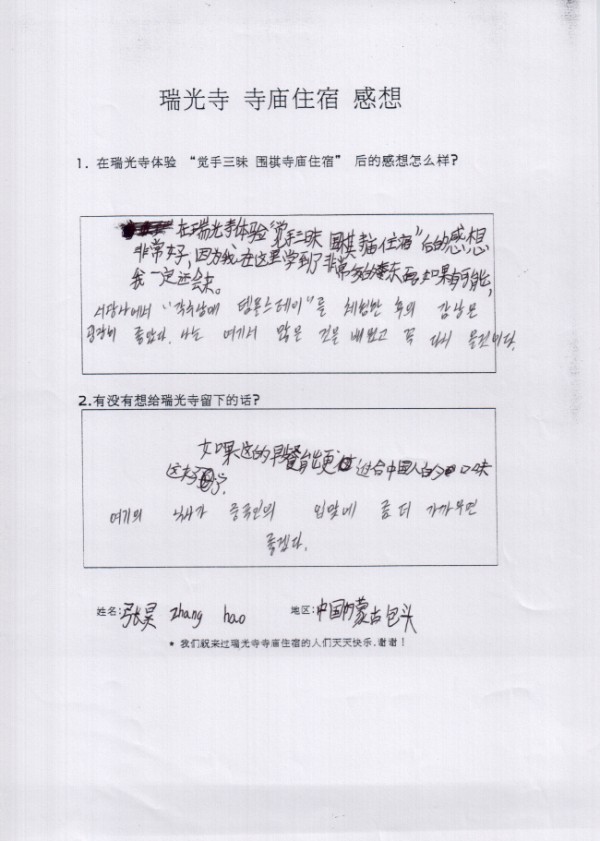 瑞光寺 寺庙住宿 感想
1. 在瑞光寺体验 “觉手三昧 围棋寺庙住宿” 后的感想怎么样?
在瑞光寺体验“觉手三昧 围棋寺庙住宿”后的感想
非常好,因为我在这里学到了非常多的东西,如果有可能,
我一定还会来。
서광사에서 "각수삼매 템플스테이"를 체험한 후의 감상은
굉장히 좋았다. 나는 여기서 많은 것을 배웠고 꼭 다시 올것이다.
2.有没有想给瑞光寺留下的话?
如果这的早餐能更适合中国人的口味
这样
여기의 식사가 중국인의 입맛에 좀 더 가까우면
좋겠다.
姓名:张昊 zhang hao 地区:中国内蒙古包头
* 我们祝来过瑞光寺寺庙住宿的人们天天快乐.谢谢!